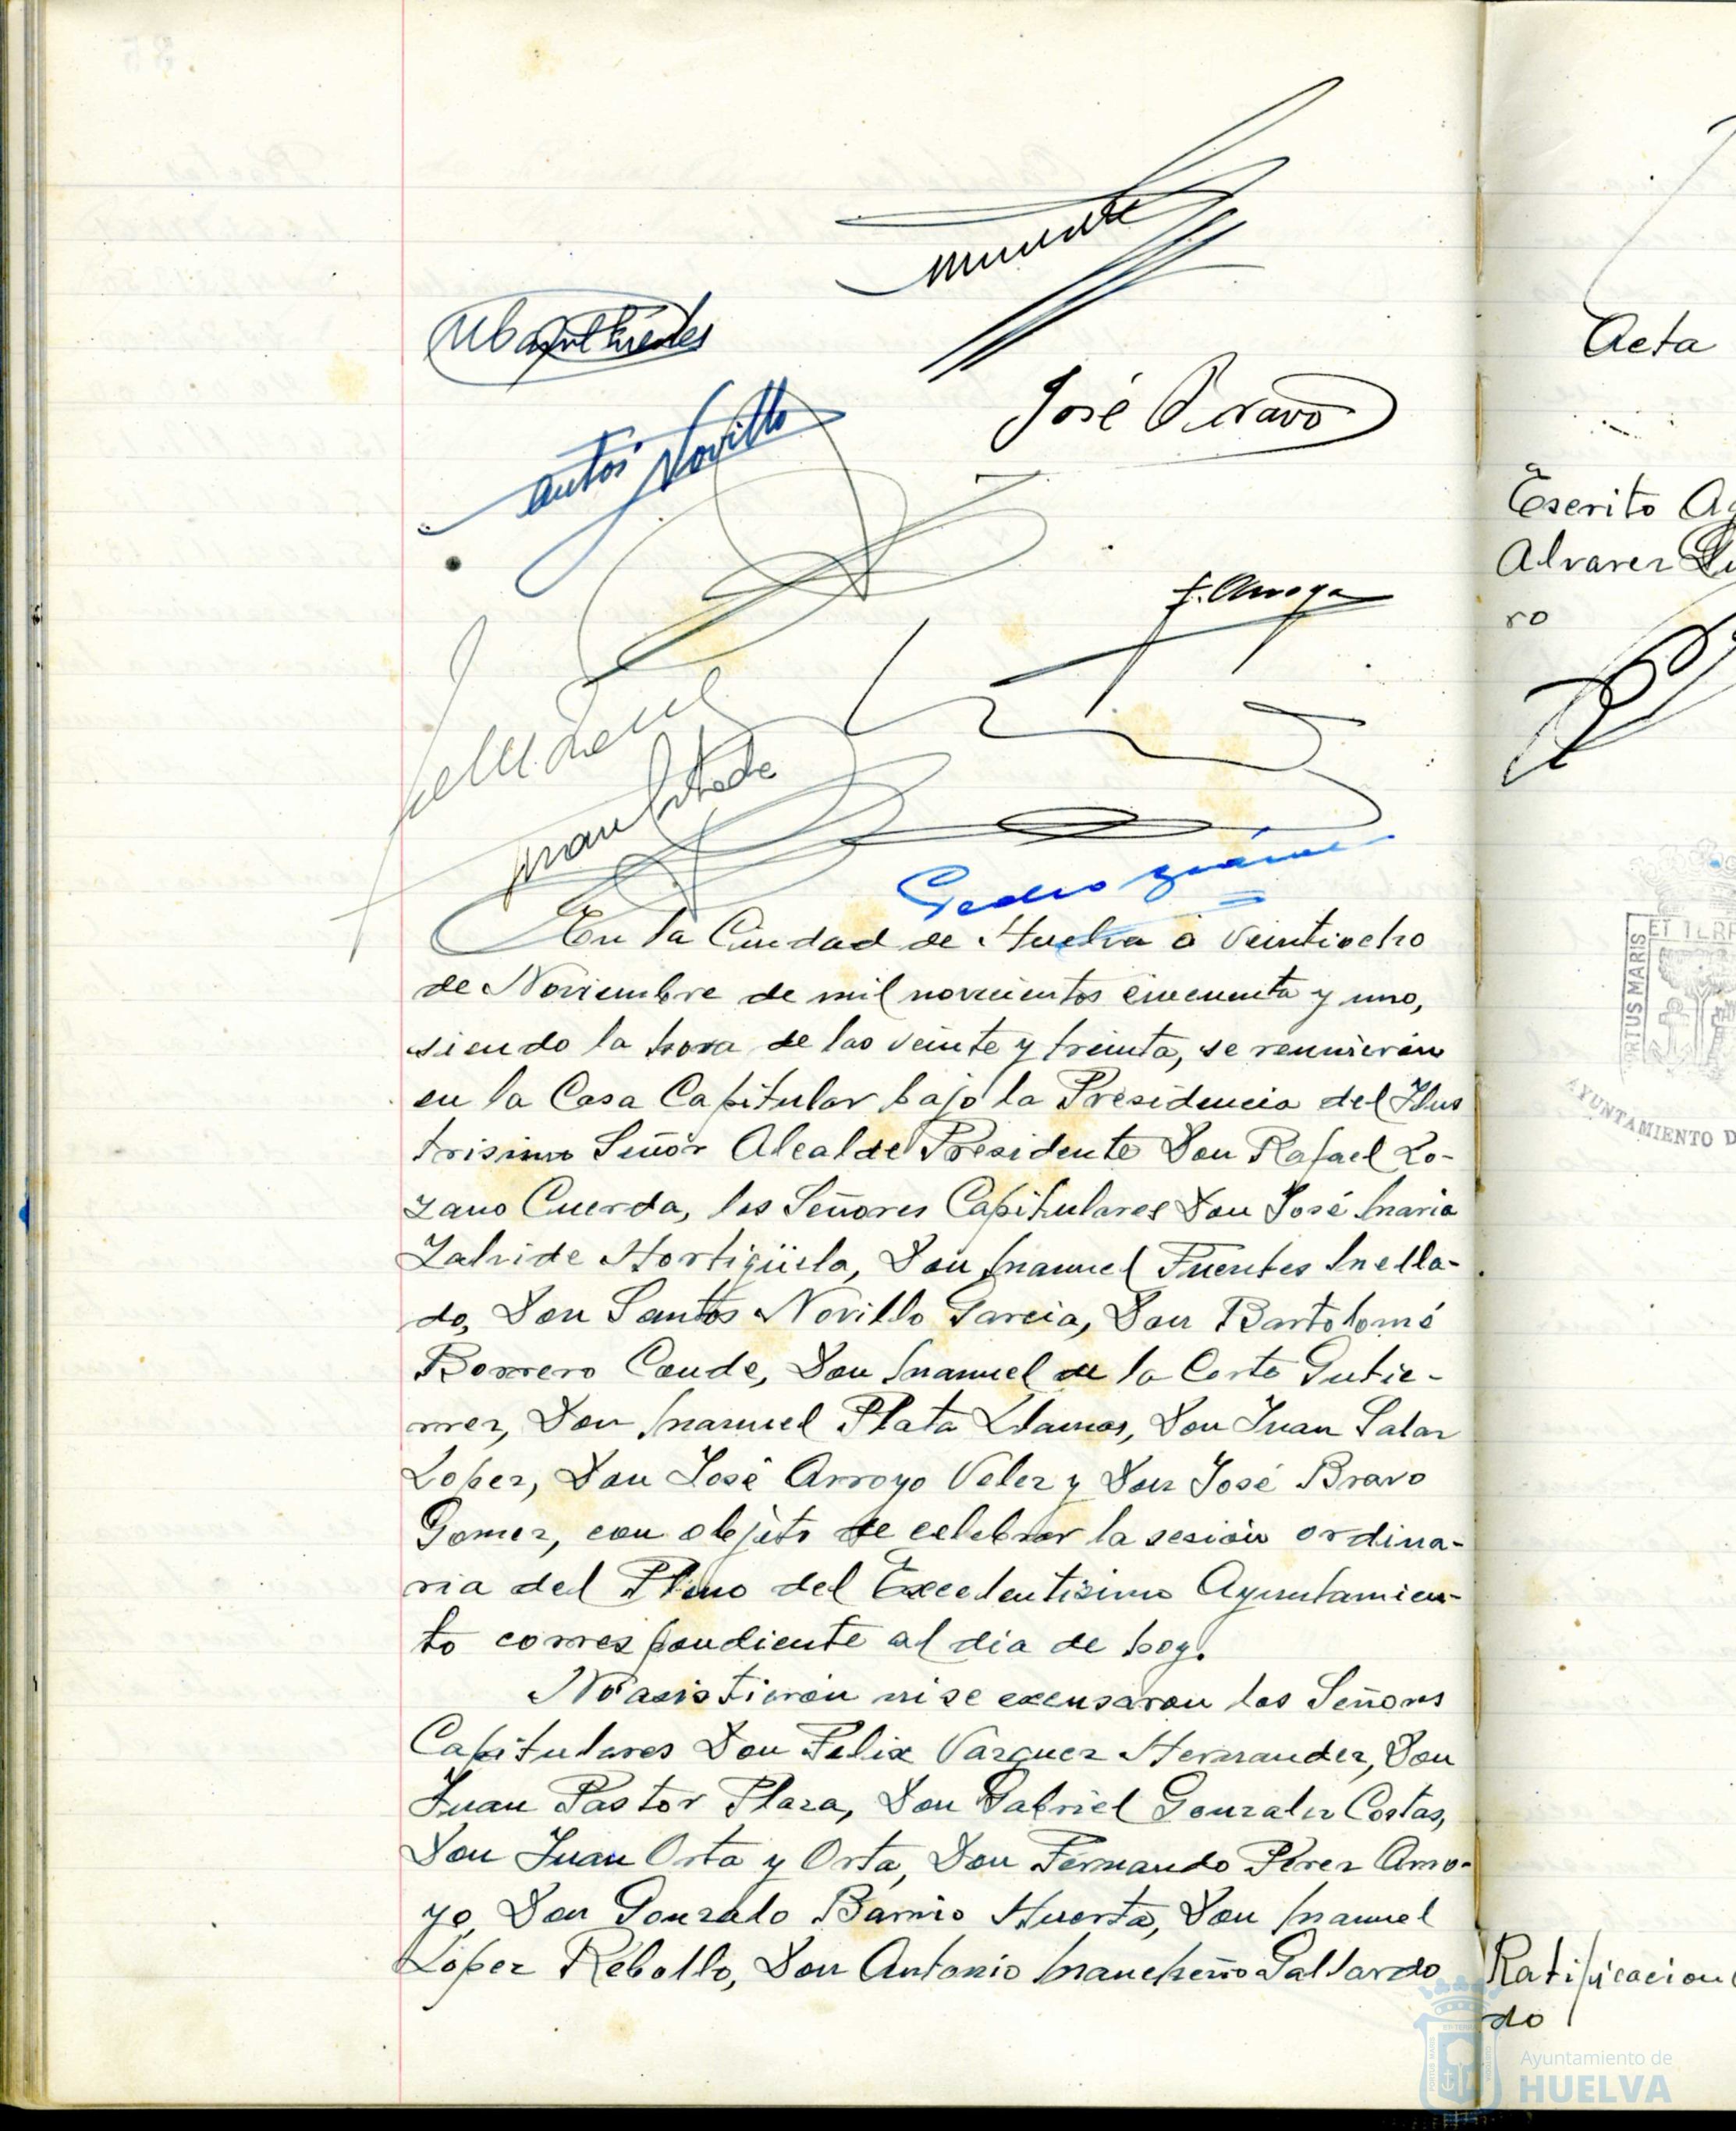 José Bravo
Santos Novillo
J. Arroyo
En la Ciudad de Huelva a veintiocho
de Noviembre de mil novecientos cincuenta y uno,
siendo la hora de las veinte y treinta, se reunieron
en la Casa Capitular bajo la Presidencia del Ilus
trisimo Señor Alcalde Presidente Don Rafael Lo-
zano Cuerda, los Señores Capitulares Don José Maria
Zalvide Hortigüela, Don Manuel Fuentes Mella-
do, Don Santos Novillo Garcia, Don Bartolomé
Borrero Conde, Don Manuel de la Corte Gutie-
rrez, Don Manuel Plata Llamas, Don Juan Salas
Lopez, Don José Arroyo Velez y Don José Bravo
Gomez, con objeto de celebrar la sesión ordina-
ria del Pleno del Excelentisimo Ayuntamien-
to correspondiente al dia de hoy.
No asistieron ni se excusaron los Señores
Capitulares Don Felix Vazquez Hernandez, Don
Juan Pastor Plaza, Don Gabriel Gonzalez Costas,
Don Juan Orta y Orta, Don Fernando Perez Arro-
yo, Don Gonzalo Barrio Huerta, Don Manuel
López Rebollo, Don Antonio Mancheño Gallardo
Acta
Escrito
Alvarez
ro
PORTUS MARIS
ET TERR
AYUNTAMIENTO D
Ratificacion
do
Ayuntamiento de
HUELVA